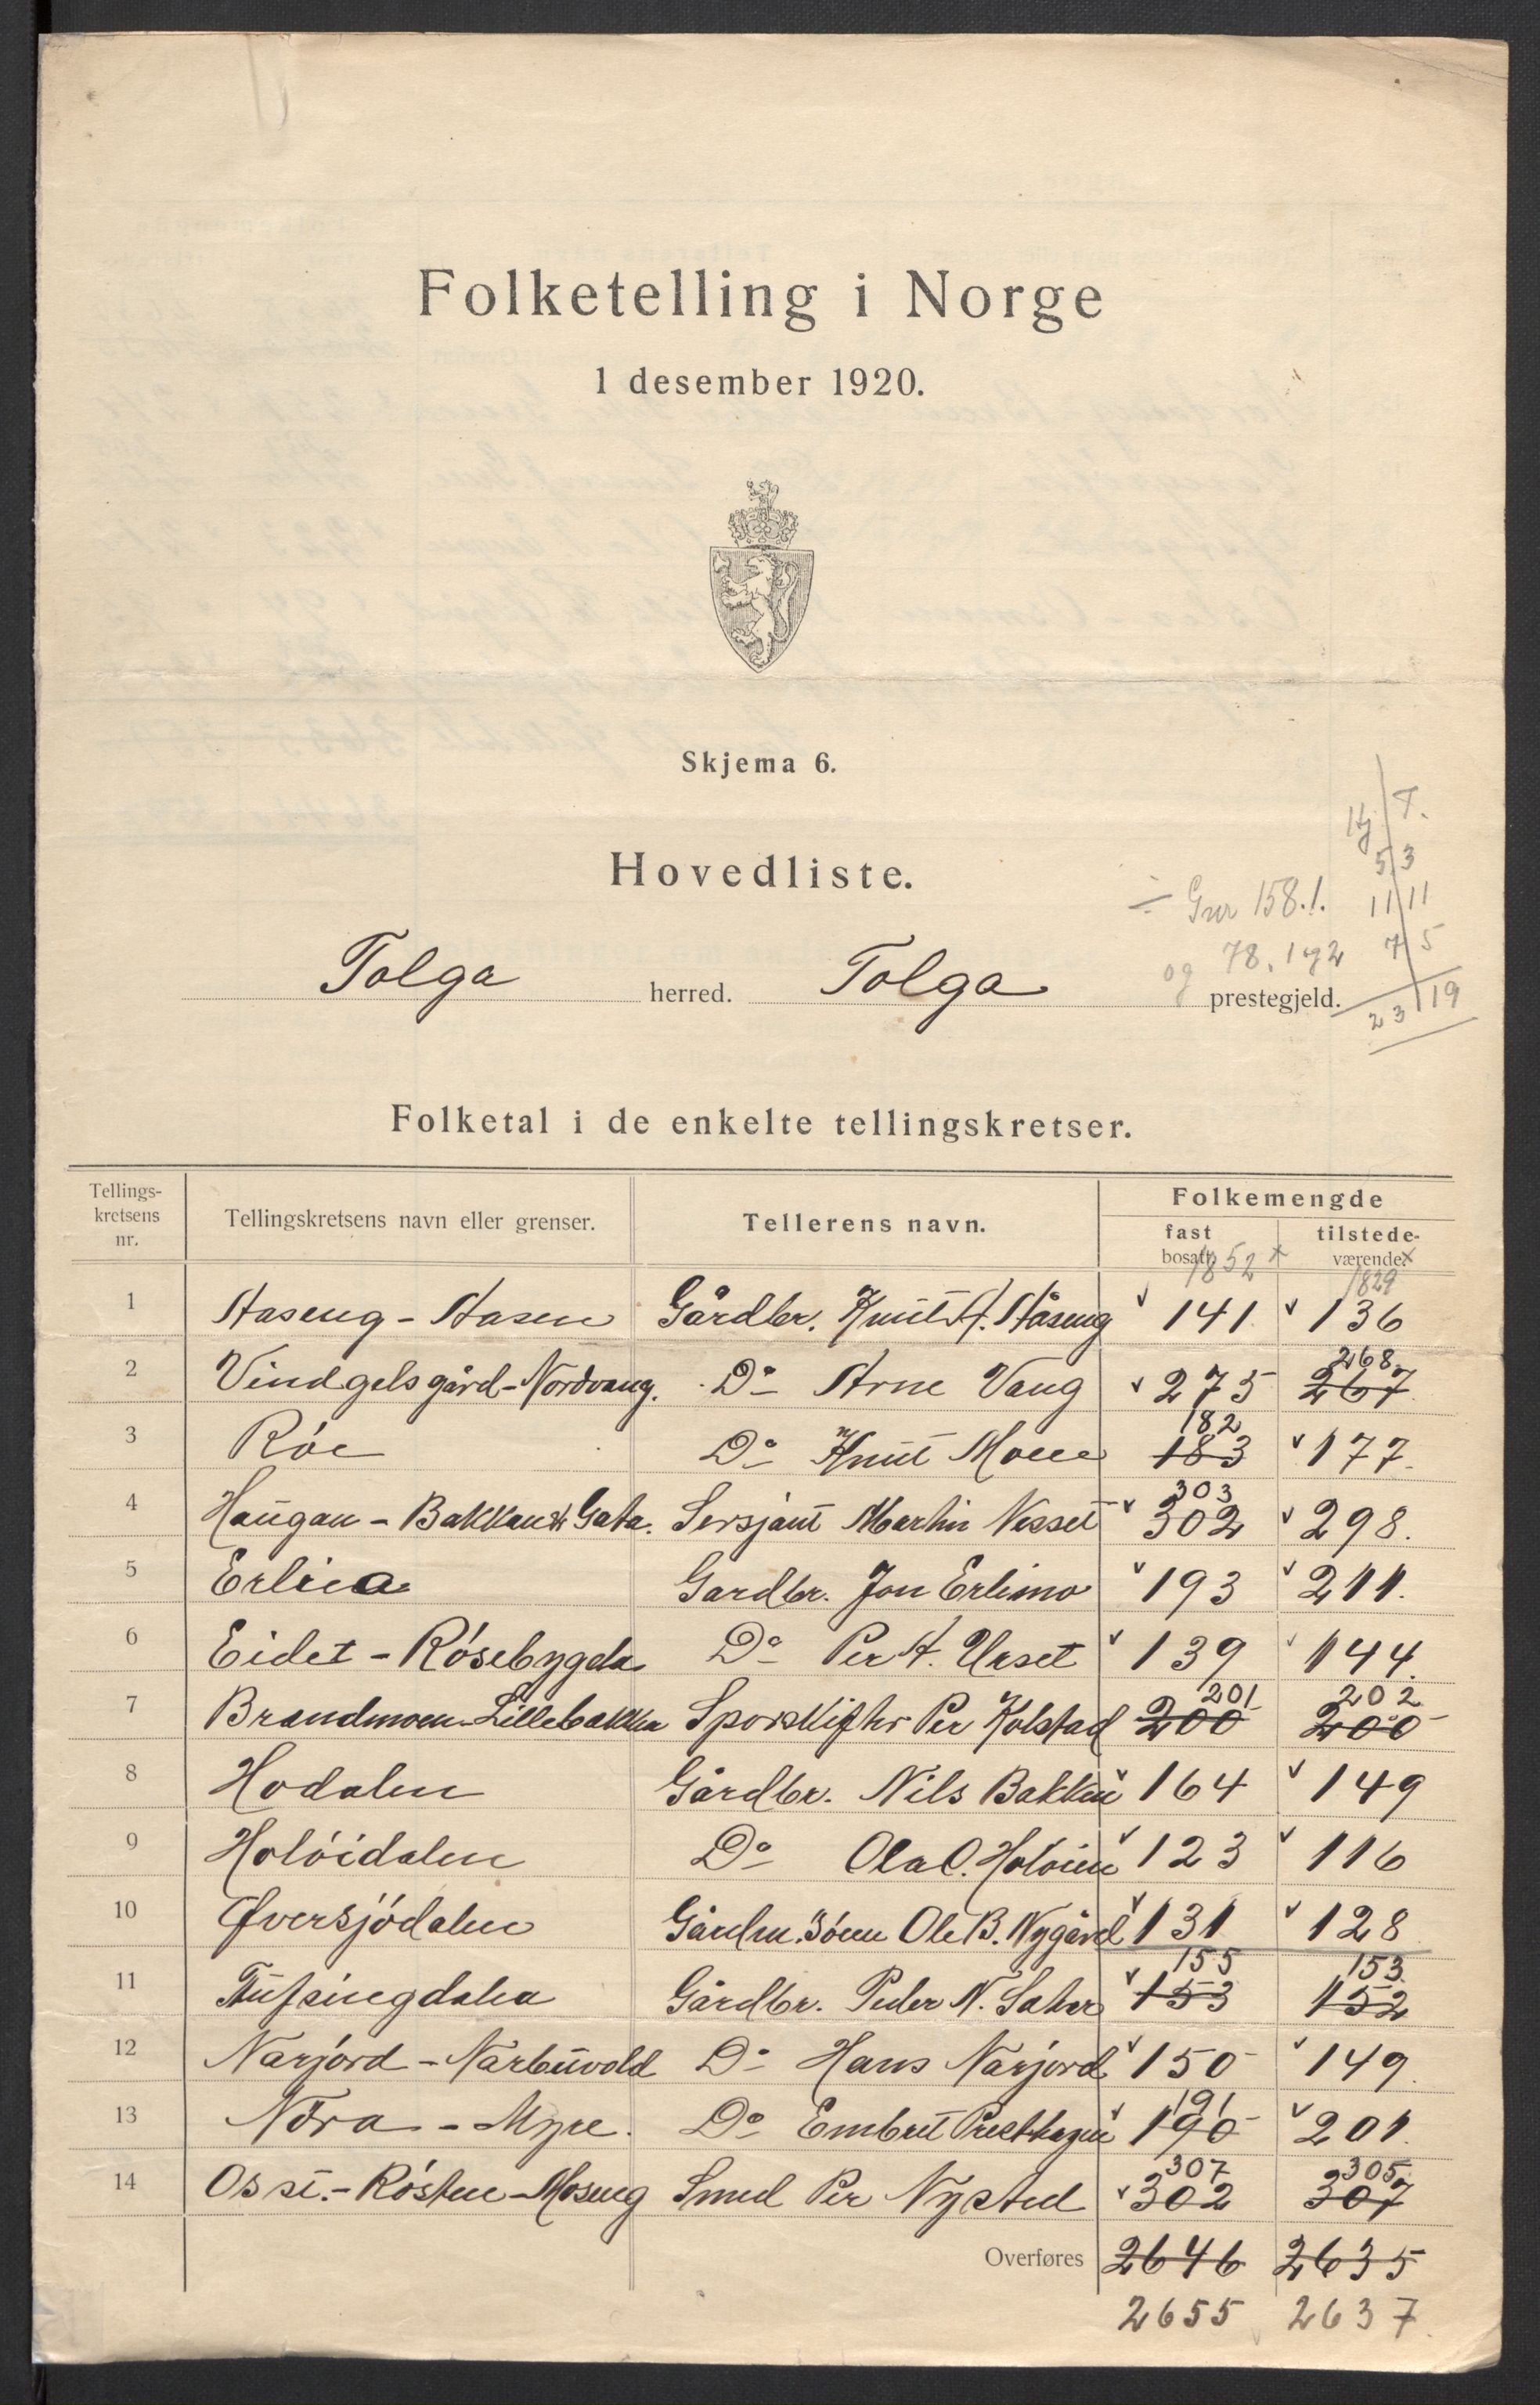 Folketelling i Norge
1 desember 1920.
Skjema 6.
Hj T.
5 3
Hovedliste.
÷ Gnr 158.1. 11 11
og 78, 1 og 2 7 5
Tolga herred. Tolga prestegjeld.
23 19
Folketal i de enkelte tellingskretser.
Tellings-kretsens nr. Tellingskretsens navn eller grenser. Tellerens navn. Folkemengde
fast bosatt. tilstede-værende.
1852 x 1829 x
1 Aaseng - Aasen Gårdbr. Knut A. Aåseng v 141 v 136
268
2 Vindgelsgård - Nordvang. Do Arne Vang v 275 267
182
3 Røe Do Knut Moen 183 v 177
303
4 Haugan - Bakkan & Gata. Sersjant Martin Nesset v 302 v 298.
5 Erlien Gardbr. Jon Erlimo v 193 v 211.
6 Eidet - Røsebygda Do Per A. Urset v 139 v 144.
201 202
7 Brandmoen - Lillebakken Sporskifter Per Kolstad 200 200
8 Hodalen Gårdbr. Nils Bakken v 164 v 149
9 Holøidalen Do Ola O. Holøien v 123 v 116
10 Øversjødalen Gårdm. søn Ole B. Nygård v 131 v 128
155 153
11 Tufsingdalen Gårdbr. Peder N. v 153 152
12 Narjord - Narbuvold Do Hans Narjord v 150 v 149
191
13 Nøra - Myre. Do Embret Presthagen v 190 v 201
307 305
14 Os st. - Røsten - Moseng Smed Per Nysted v 302 307
Overføres 2646 2635
2655 2637